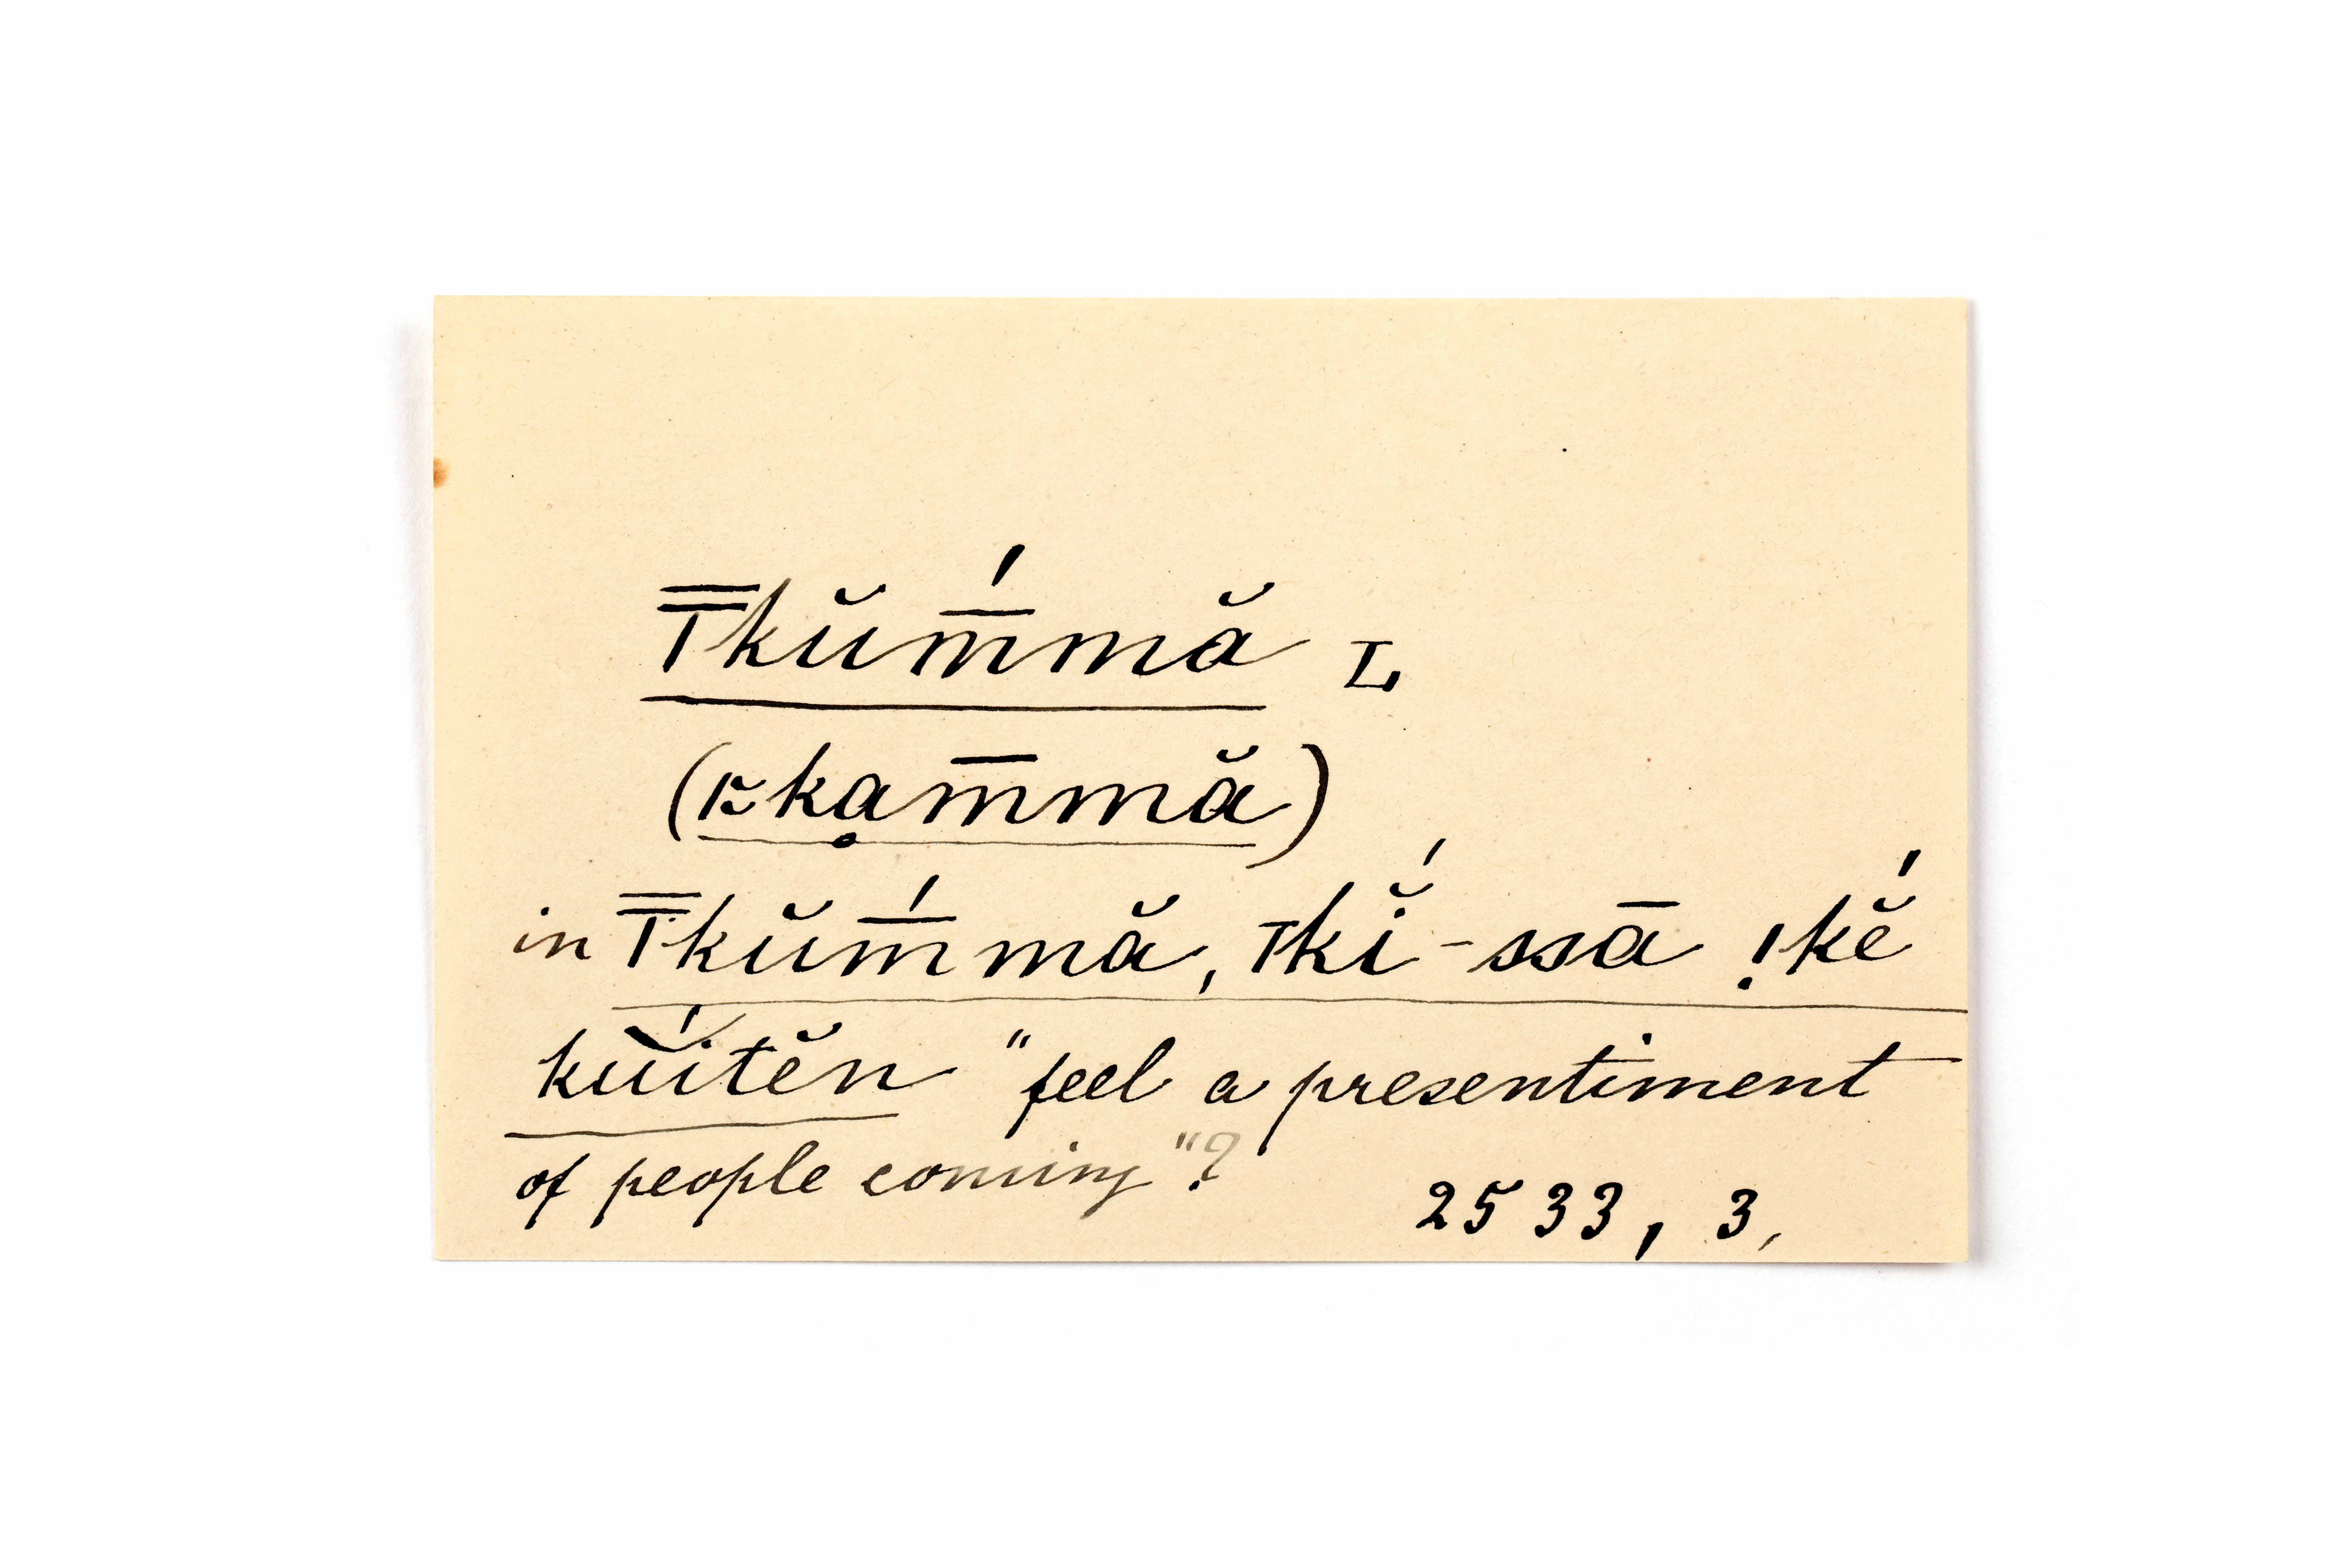 T̿kŭm̄́mă L,
(r̰kạm̄mă)
in T̿kŭm̄́mă, Tkĭ́-ssā !kĕ́
kŭ́itĕn "feel a presentiment
of people coming"?
2533, 3,